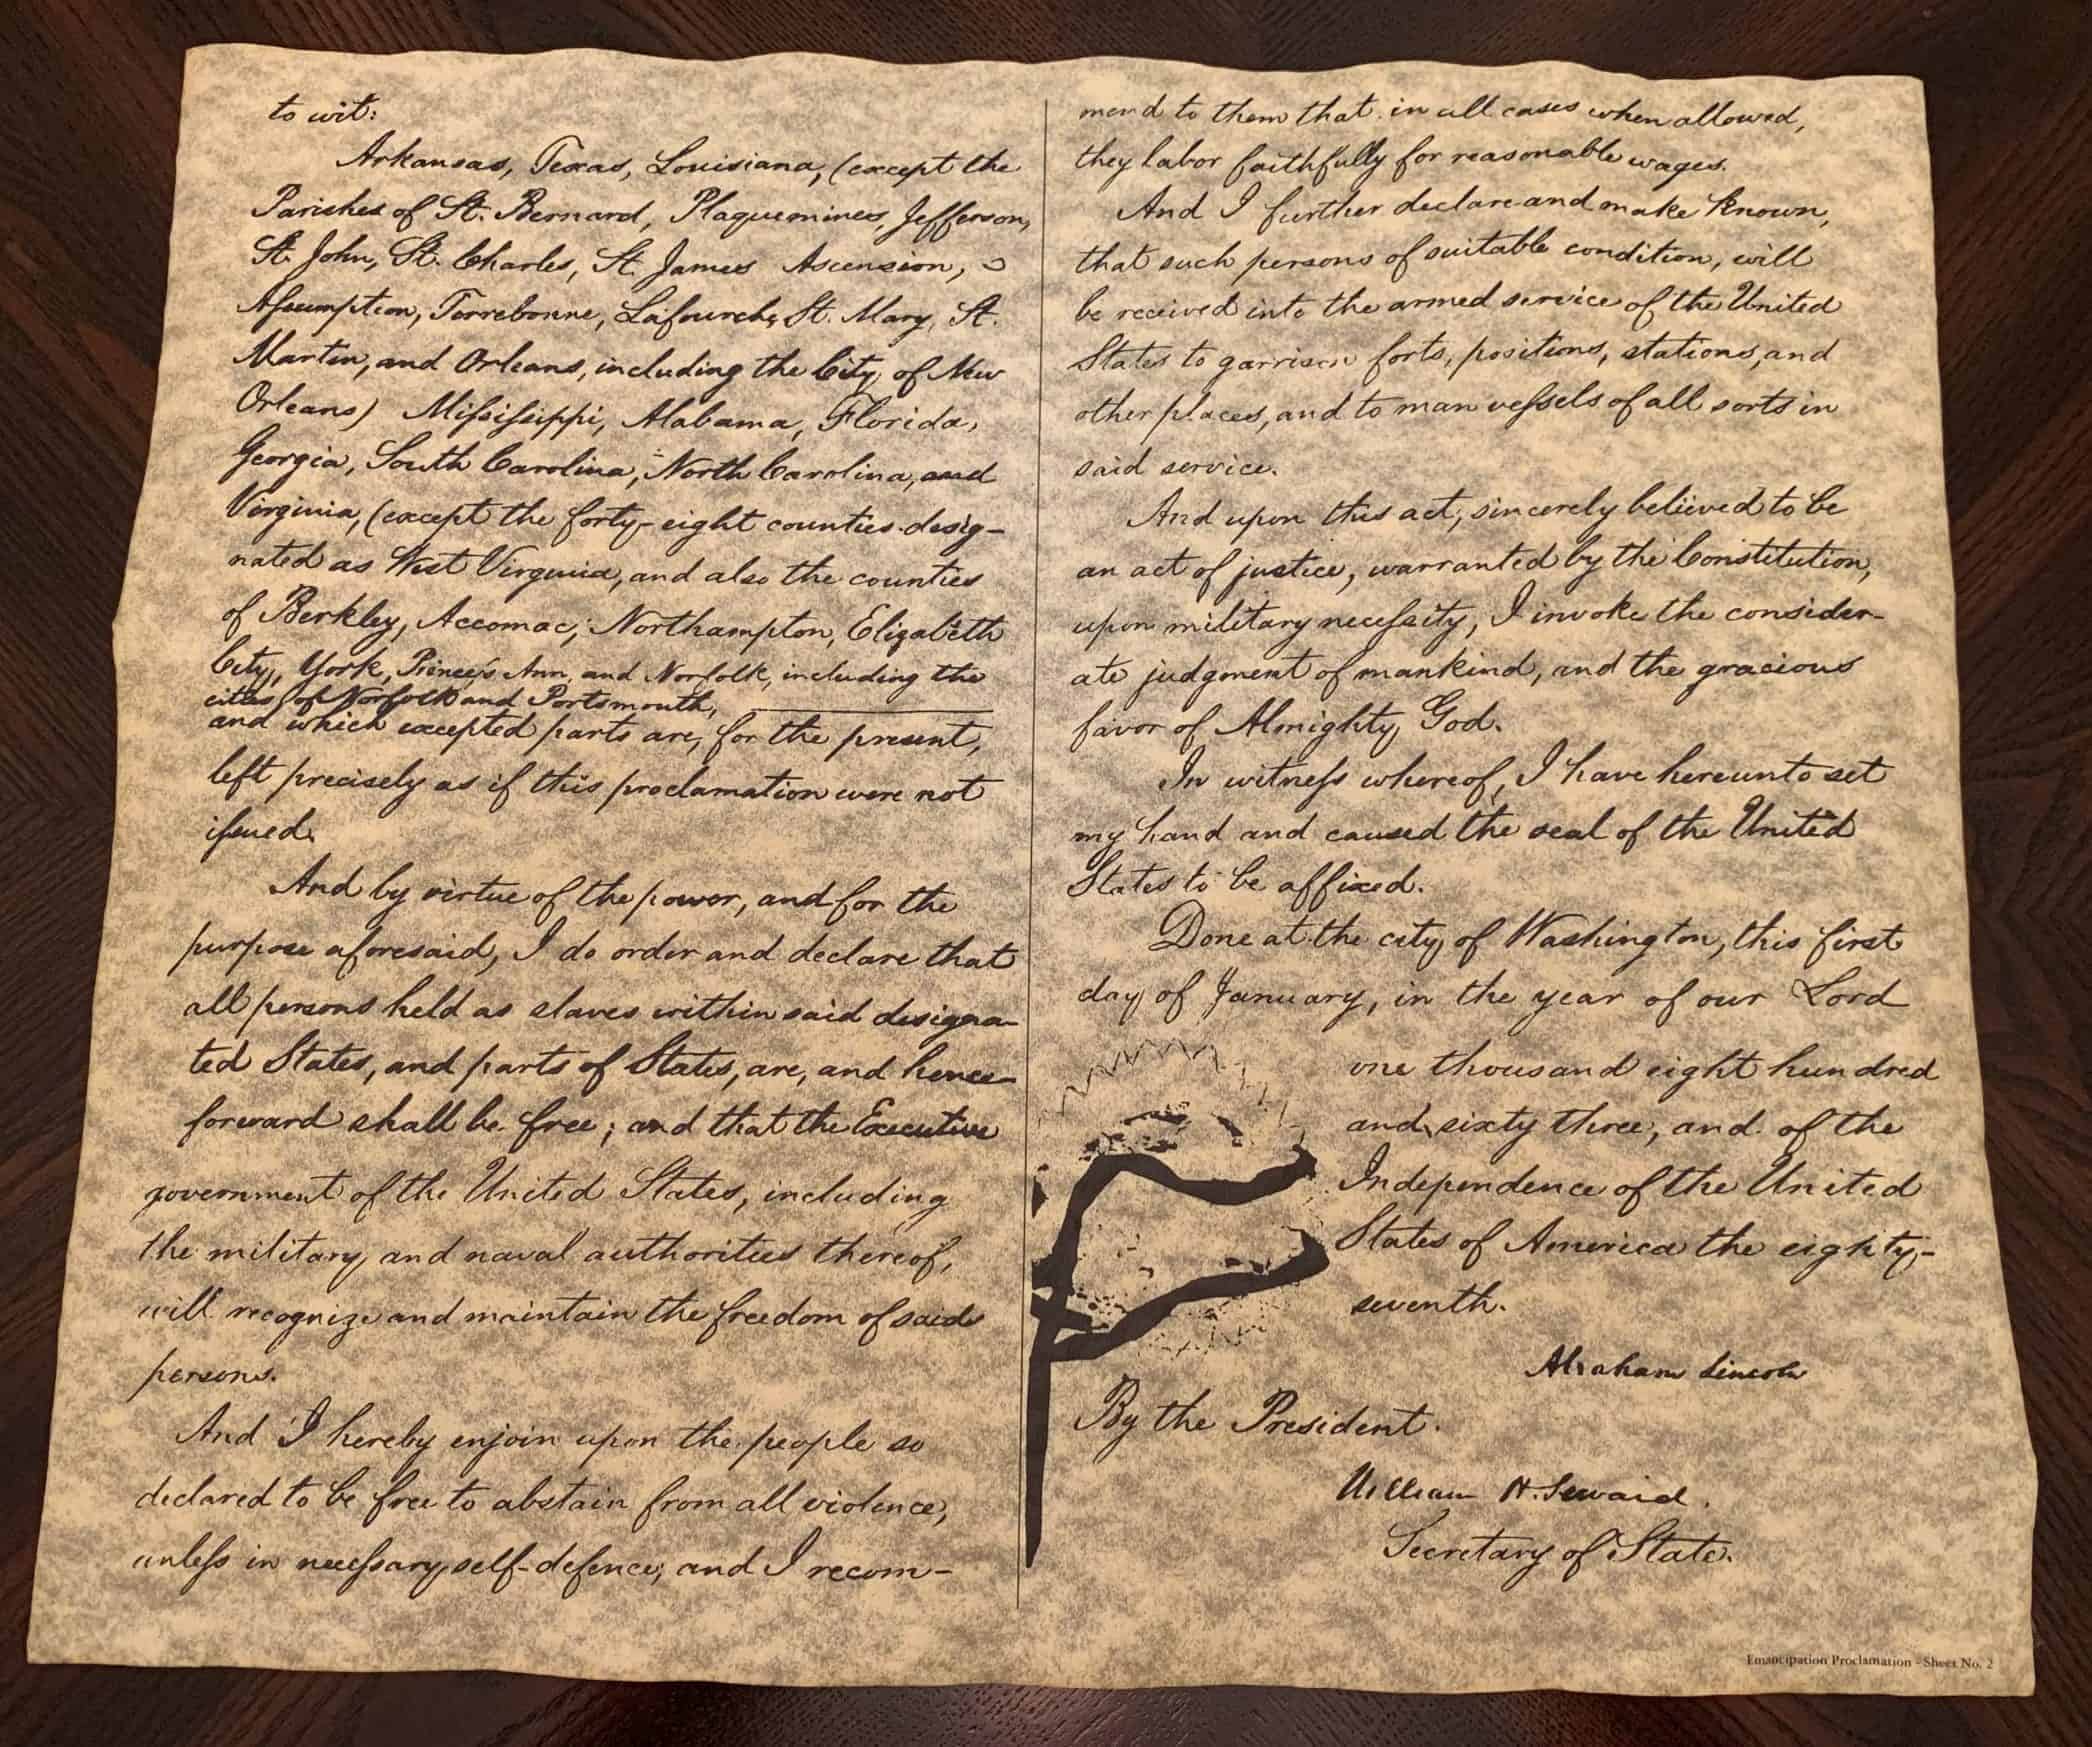 to wit:
Arkansas, Texas, Louisiana, (except the
Parishes of St. Bernard, Plaquemines, Jefferson,
St. John, St. Charles, St. James Ascension,
Assumption, Terrebonne, Lafourche, St. Mary, St.
Martin, and Orleans, including the City of New
Orleans) Mississippi, Alabama, Florida,
Georgia, South Carolina, North Carolina, and
Virginia, (except the forty-eight counties desig-
nated as West Virginia, and also the counties
of Berkley, Accomac, Northampton, Elizabeth
City, York, Princess Ann, and Norfolk, including the
cities of Norfolk and Portsmouth,
and which excepted parts are, for the present,
left precisely as if this proclamation were not
issued.
And by virtue of the power, and for the
purpose aforesaid, I do order and declare that
all persons held as slaves within said designa-
ted States, and parts of States, are, and hence-
forward shall be free; and that the Executive
government of the United States, including
the military and naval authorities thereof,
will recognize and maintain the freedom of said
persons.
And I hereby enjoin upon the people so
declared to be free to abstain from all violence,
unless in necessary self-defence; and I recom-
mend to them that in all cases when allowed,
they labor faithfully for reasonable wages.
And I further declare and make known,
that such persons of suitable condition, will
be received into the armed service of the United
States to garrison forts, positions, stations, and
other places, and to man vessels of all sorts in
said service.
And upon this act, sincerely believed to be
an act of justice, warranted by the Constitution,
upon military necessity, I invoke the consider-
ate judgment of mankind, and the gracious
favor of Almighty God.
In witness whereof, I have hereunto set
my hand and caused the seal of the United
States to be affixed.
Done at the city of Washington, this first
day of January, in the year of our Lord
one thousand eight hundred
and sixty three, and of the
Independence of the United
States of America the eighty-
seventh.
Abraham Lincoln
By the President.
William H. Seward.
Secretary of State.
Emancipation Proclamation - Sheet No. 2